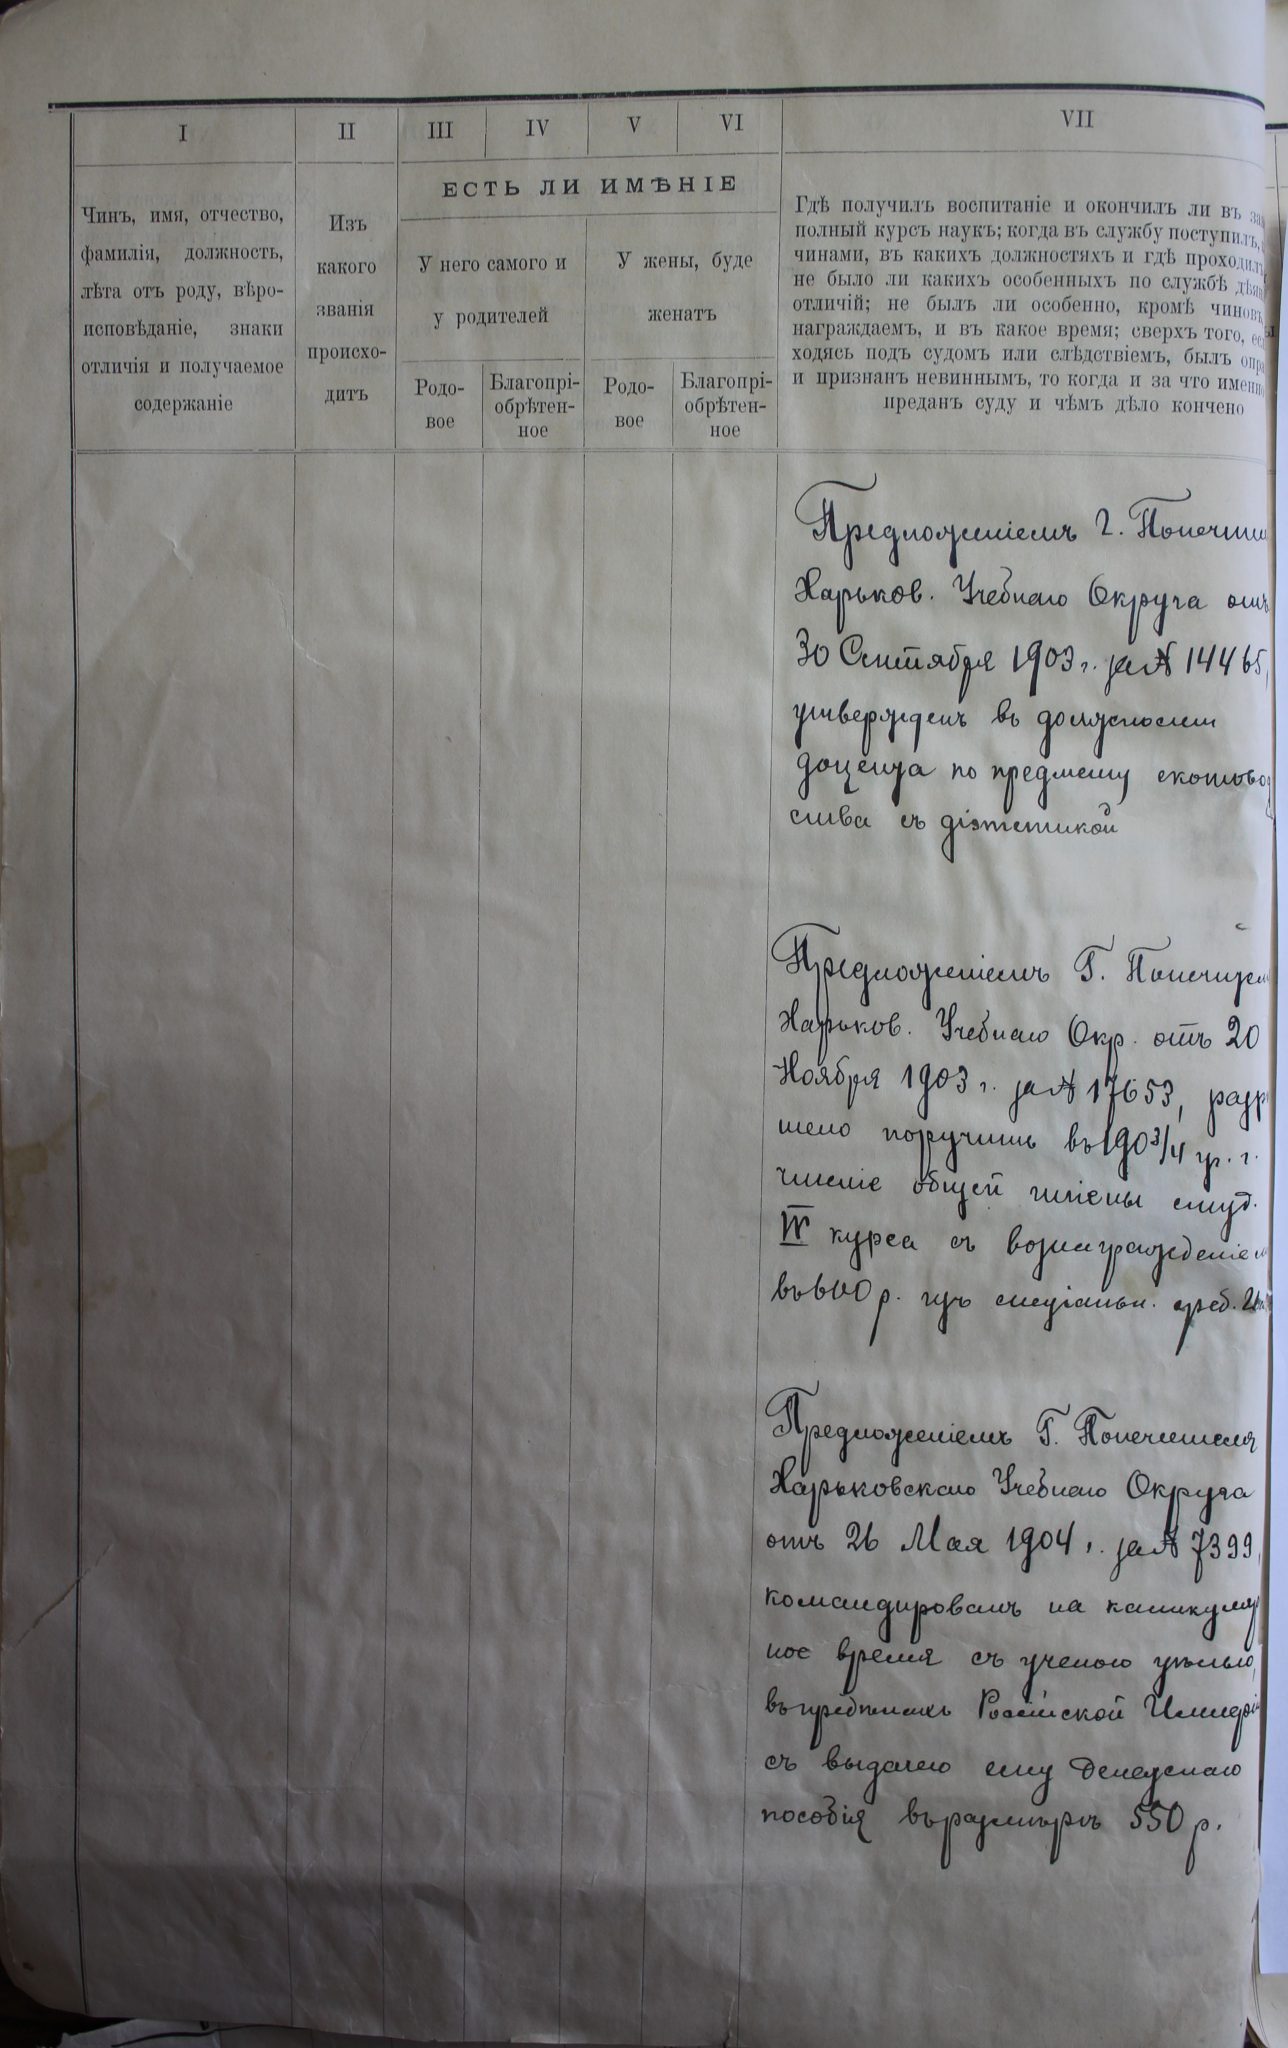 I
II
III
IV
V
VI
VII
ЕСТЬ ЛИ ИМѢНІЕ
Чинъ, имя, отчество,
фамилія, должность,
лѣта отъ роду, вѣро-
исповѣданіе, знаки
отличія и получаемое
содержаніе
Изъ
какого
званія
происхо-
дитъ
У него самого и
у родителей
У жены, буде
женатъ
Родо-
вое
Благопрі-
обрѣтен-
ное
Родо-
вое
Благопрі-
обрѣтен-
ное
Гдѣ получилъ воспитаніе и окончилъ ли въ за
полный курсъ наукъ; когда въ службу поступилъ,
чинами, въ какихъ должностяхъ и гдѣ проходилъ
не было ли какихъ особенныхъ по службѣ дѣян
отличій; не былъ ли особенно, кромѣ чиновъ
награждаемъ, и въ какое время; сверхъ того, ес
ходясь подъ судомъ или слѣдствіемъ, былъ опра
и признанъ невиннымъ, то когда и за что именно
преданъ суду и чѣмъ дѣло кончено
Предложеніемъ Г. Попечит
Харьков. Учебнаго Округа отъ
30 Сентября 1903 г. за № 14465,
утвержденъ въ должности
доцента по предмету скотовод
ства съ діэтетикой
Предложеніемъ Г. Попечител
Харьков. Учебнаго Окр. отъ 20
Ноября 1903 г. за № 17653, разрѣ
шено поручить въ 1903/4 уч. г.
чтеніе общей гигіены студ.
IV курса съ вознагражденіем
въ 600 р. изъ спеціальн. сред.
Предложеніемъ Г. Попечителя
Харьковскаго Учебнаго Округа
отъ 26 Мая 1904 г. за № 7399,
командированъ на каникуляр
ное время съ ученою цѣлью,
въ предѣлахъ Россійской Имперіи
съ выдачею ему денежнаго
пособія въ размѣрѣ 550 р.